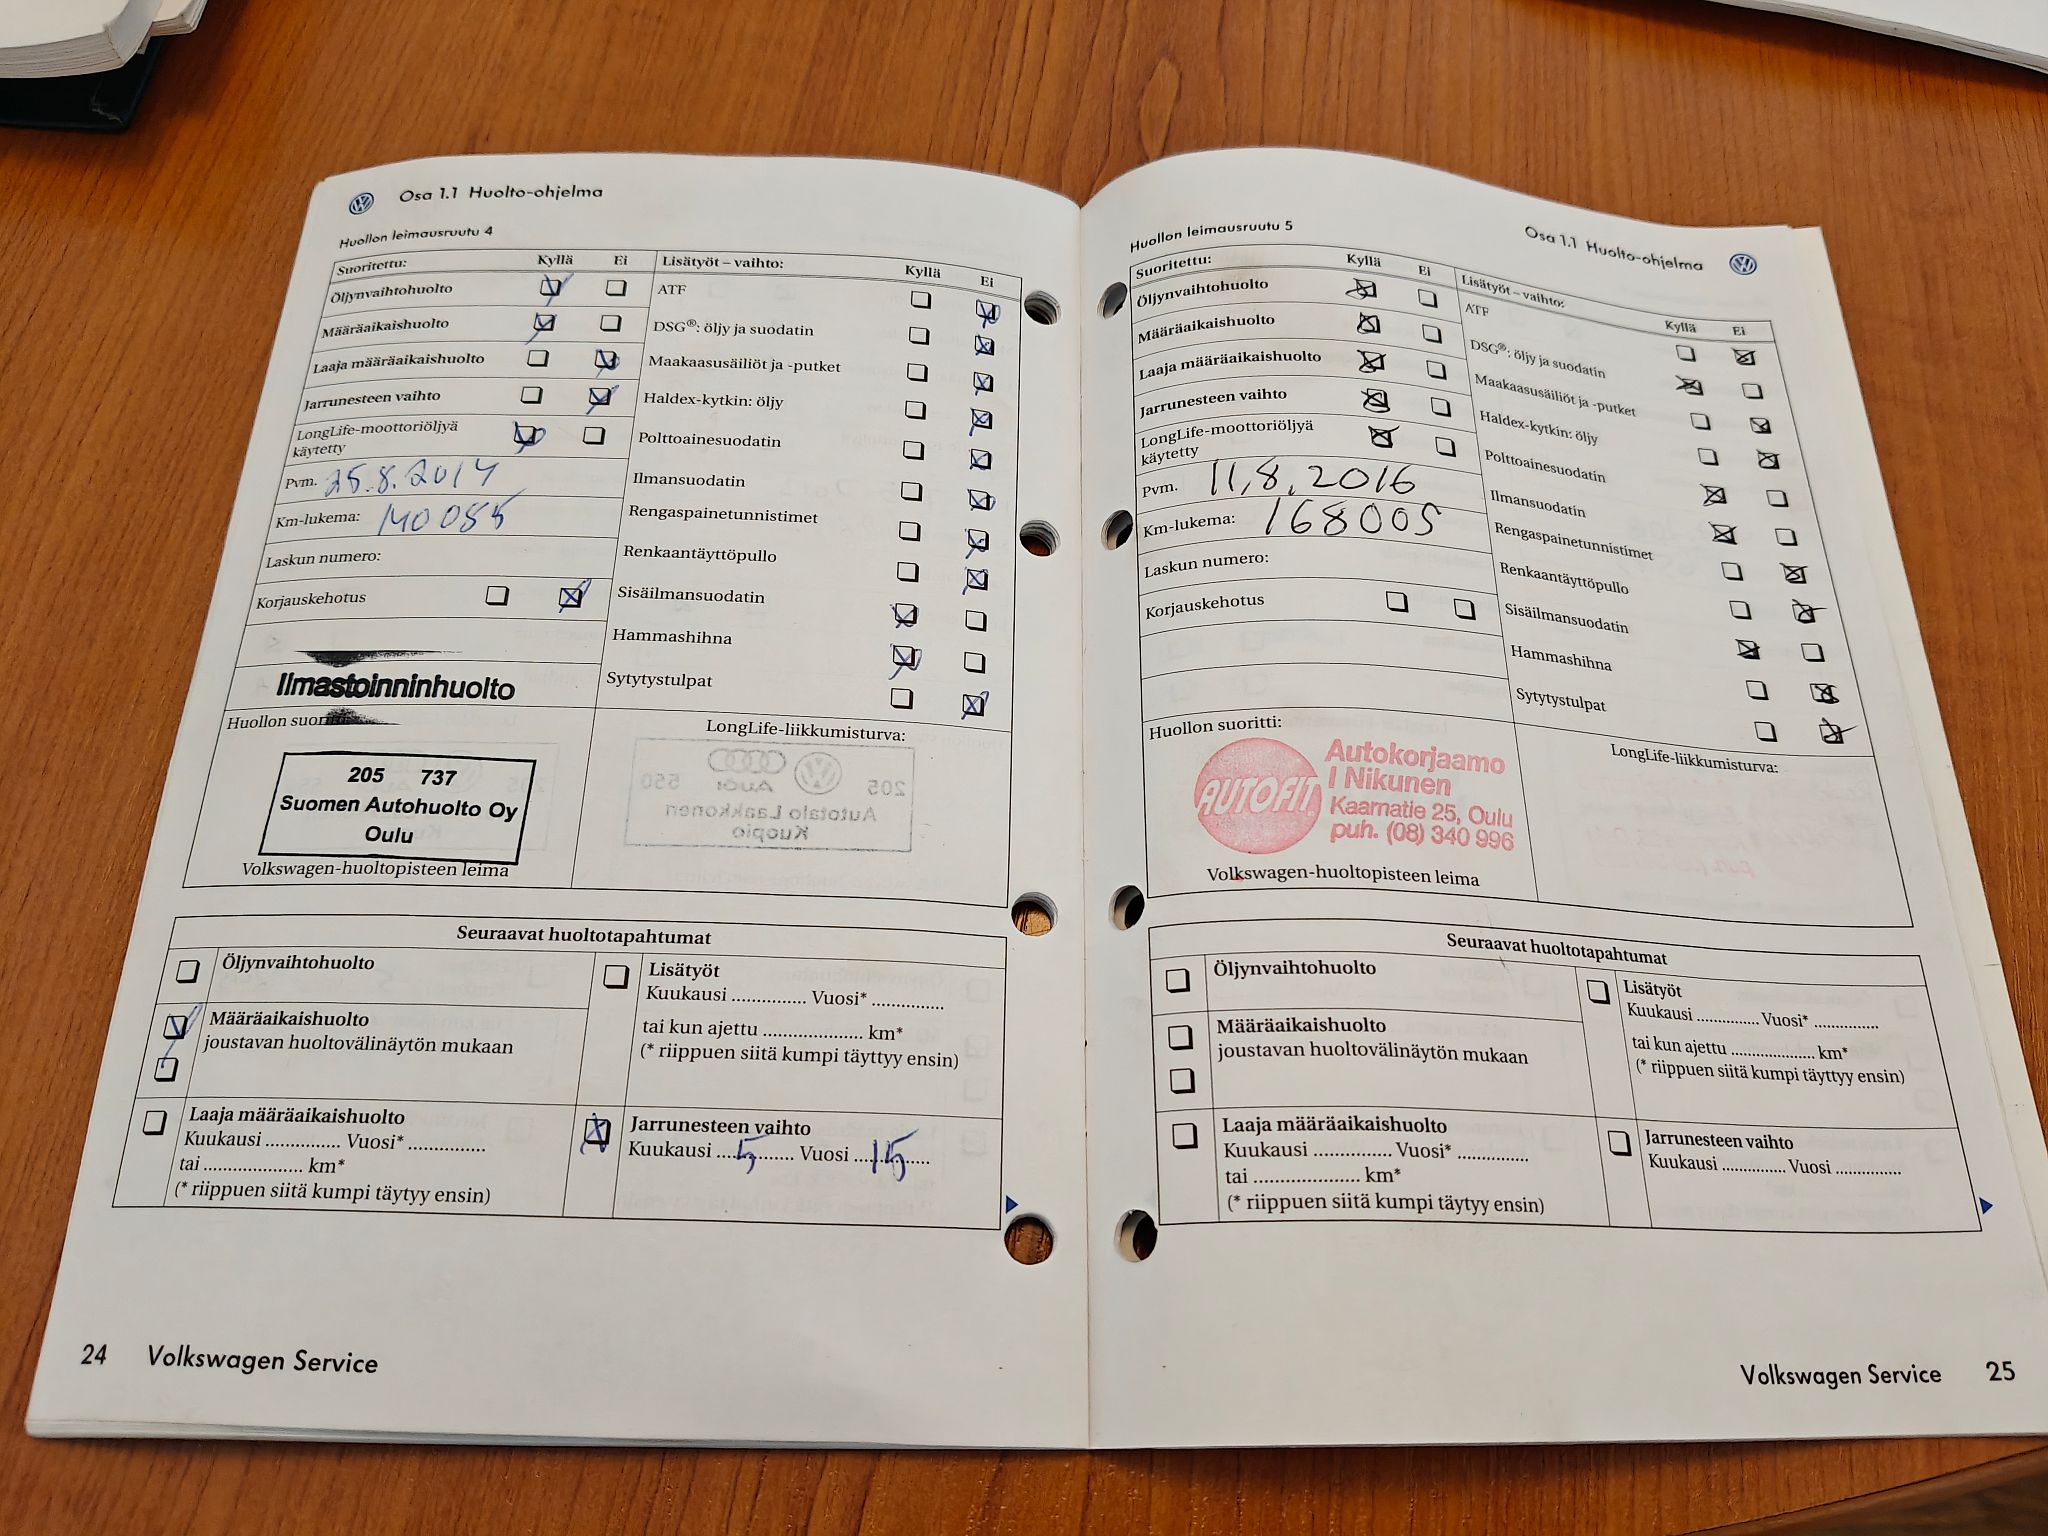 Osa 1.1 Huolto-ohjelma
Huollon leimausruutu 4
Suoritettu: Kyllä Ei
Öljynvaihtohuolto
Määräaikaishuolto
Laaja määräaikaishuolto
Jarrunesteen vaihto
LongLife-moottoriöljyä
käytetty
Pvm. 25.8.2014
Km-lukema: 140055
Laskun numero:
Korjauskehotus
Ilmastoinninhuolto
Lisätyöt – vaihto: Kyllä Ei
ATF
DSG®: öljy ja suodatin
Maakaasusäiliöt ja -putket
Haldex-kytkin: öljy
Polttoainesuodatin
Ilmansuodatin
Rengaspainetunnistimet
Renkaantäyttöpullo
Sisäilmansuodatin
Hammashihna
Sytytystulpat
Huollon suori
205 737
Suomen Autohuolto Oy
Oulu
Volkswagen-huoltopisteen leima
LongLife-liikkumisturva:
205 Audi 550
Autotalo Laakkonen
Kuopio
Seuraavat huoltotapahtumat
Öljynvaihtohuolto
Määräaikaishuolto
joustavan huoltovälinäytön mukaan
Laaja määräaikaishuolto
Kuukausi ............... Vuosi* ...............
tai .................... km*
(* riippuen siitä kumpi täytyy ensin)
Lisätyöt
Kuukausi ............... Vuosi* ...............
tai kun ajettu .................... km*
(* riippuen siitä kumpi täyttyy ensin)
Jarrunesteen vaihto
Kuukausi 5 Vuosi 15
24 Volkswagen Service
Osa 1.1 Huolto-ohjelma
Huollon leimausruutu 5
Suoritettu: Kyllä Ei
Öljynvaihtohuolto
Määräaikaishuolto
Laaja määräaikaishuolto
Jarrunesteen vaihto
LongLife-moottoriöljyä
käytetty
Pvm. 11,8,2016
Km-lukema: 168005
Laskun numero:
Korjauskehotus
Lisätyöt – vaihto: Kyllä Ei
ATF
DSG®: öljy ja suodatin
Maakaasusäiliöt ja -putket
Haldex-kytkin: öljy
Polttoainesuodatin
Ilmansuodatin
Rengaspainetunnistimet
Renkaantäyttöpullo
Sisäilmansuodatin
Hammashihna
Sytytystulpat
Huollon suoritti:
AUTOFIT
Autokorjaamo
I Nikunen
Kaarnatie 25, Oulu
puh. (08) 340 996
Volkswagen-huoltopisteen leima
LongLife-liikkumisturva:
Seuraavat huoltotapahtumat
Öljynvaihtohuolto
Määräaikaishuolto
joustavan huoltovälinäytön mukaan
Laaja määräaikaishuolto
Kuukausi ............... Vuosi* ...............
tai .................... km*
(* riippuen siitä kumpi täytyy ensin)
Lisätyöt
Kuukausi ............... Vuosi* ...............
tai kun ajettu .................... km*
(* riippuen siitä kumpi täyttyy ensin)
Jarrunesteen vaihto
Kuukausi ............... Vuosi ...............
Volkswagen Service 25